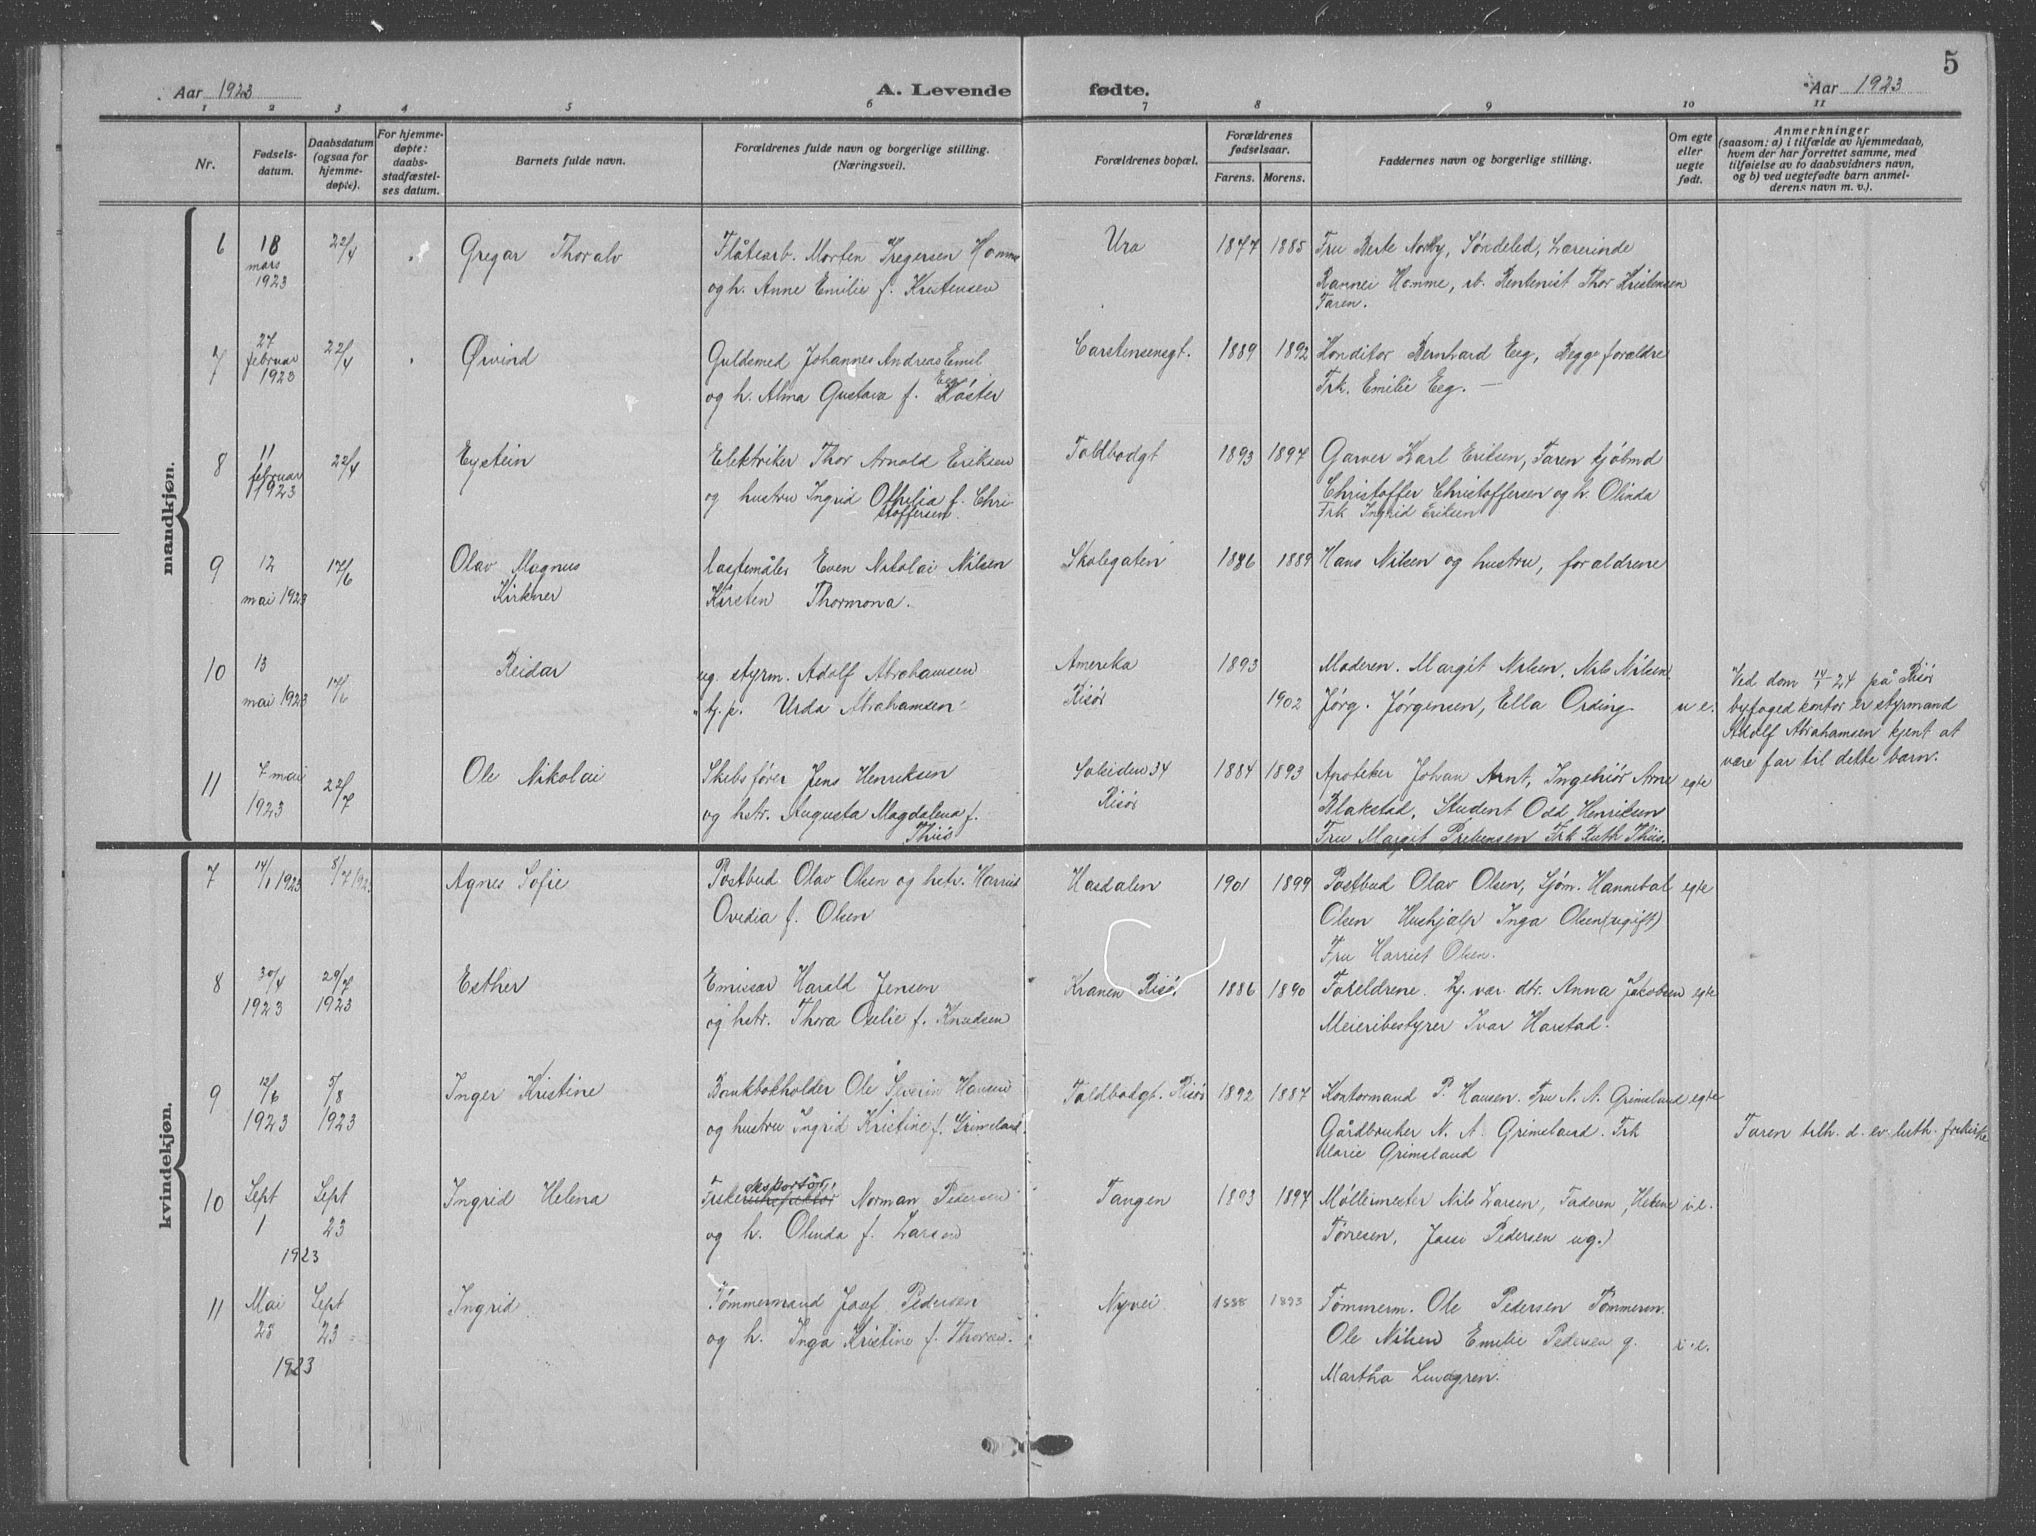 5
Aar 1923
A. Levende fødte.
Aar 1923
1 2 3 4 5 6 7 8 9 10 11
Nr.
Fødsels-
datum.
Daabsdatum
(ogsaa for
hjemme-
døpte).
For hjemme-
døpte:
daabs-
stadfæstel-
ses datum.
Barnets fulde navn.
Forældrenes fulde navn og borgerlige stilling.
(Næringsvei).
Forældrenes bopæl.
Forældrenes
fødselsaar.
Farens. Morens.
Faddernes navn og borgerlige stilling.
Om egte
eller
uegte
født.
Anmerkninger
(saasom: a) i tilfælde av hjemmedaab,
hvem der har forrettet samme, med
tilføielse av to daabsvidners navn,
og b) ved uegtefødte barn anmel-
derens navn m. v.).
mandkjøn.
6
18
mars
1923
22/4
Gregar Thoralv
Flåtearb. Morten Gregersen Homme
og h. Anne Emilie f. Kristensen
Ura
1877 1885
Fru Berte Norby, Søndeled, Lærerinde
Homme, Thor Kristensen
Faren.
7
27
februar
1923
22/4
Øivind
Guldsmed Johannes Andreas Emil
Eeg
og h. Alma Gustava f. Köster
Carstensensgt.
1889 1892
Konditor Bernhard Eeg, Begge forældre
Frk. Emilie Eeg. —
8
11
februar
1923
22/4
Eystein
Elektriker Thor Arnold Eriksen
og hustru Ingrid Othilia f. Chri-
stoffersen.
Toldbodgt
1893 1897
Garver Karl Eriksen, Faren kjøbmd
Christoffer Christoffersen og h. Olinda
Frk Ingrid Eriksen
9
12
mai 1923
17/6
Olav Magnus
Kirkner
lastemåler Even Nikolai Nilsen
Kirsten Thormona.
Skolegaten
1886 1889
Hans Nilsen og hustru, forældrene
10
13
mai 1923
17/6
Reidar
ug. styrm. Adolf Abrahamsen
tj. p. Urda Abrahamsen
Amerika
Risør
1893
1902
Moderen. Margit Nilsen, Nils Nilsen
Jörg. Jörgensen, Ella Ording
u e.
Ved dom 14/1 24 på Risør
byfogedkontor er styrmand
Adolf Abrahamsen kjent at
være far til dette barn.
11
7 mai
1923
22/7
Ole Nikolai
Skibsfører Jens Henriksen
og hstr. Augusta Magdalena f.
Thiis
Solsiden 34
Risør
1884 1893
Apoteker Johan Arnt, Arne
Blakstad, Student Odd Henriksen
Fru Margit Prebensen Frk Ruth Thiis.
egte
kvindekjøn.
7
14/1 1923
8/7 1923
Agnes Sofie
Postbud Olav Olsen og hstr. Harriet
Ovedia f. Olsen
Hasdalen
1901 1899
Postbud Olav Olsen, Sjøm. Hannibal
Olsen Hushjælp Inga Olsen (ugift)
Fru Harriet Olsen.
egte
8
30/4
1923
29/7
1923
Esther
Emissær Harald Jensen
og hstr. Thora Oselie f. Knudsen
Kranen Risør
1886 1890
Foreldrene. Anna Jakobsen
Meieribestyrer Ivar Harstad.
egte
9
12/6
1923
5/8
1923
Inger Kristine
Bankbokholder Ole Severin Hansen
og hustru Ingrid Kristine f. Grimsland
Toldbodgt. Risør
1892 1887
Kontormand P. Hansen. Fru N. A. Grimsland
Gårdbruker N. A. Grimsland. Frk
Marie Grimsland
egte
Faren tilh. d. ev. luth. frikirke
10
Sept
1
1923
Sept
23
Ingrid Helena
eksportør,
Fiske Norman Pedersen
og h. Olinda f. Larsen
Tangen
1893 1897
Møllemester Nils Larsen, Faderen, Helene
Torresen, Pedersen ug.)
i.e.
11
Mai
28
1923
Sept
23
Ingrid
Tömmermand Josef Pedersen
og h. Inga Kristine f. Thorsen.
Nyvei
1888 1893
Tømmerm. Ole Pedersen Tømmerm.
Ole Nilsen Emilie Pedersen g.
Martha Lundgren.
i.e.